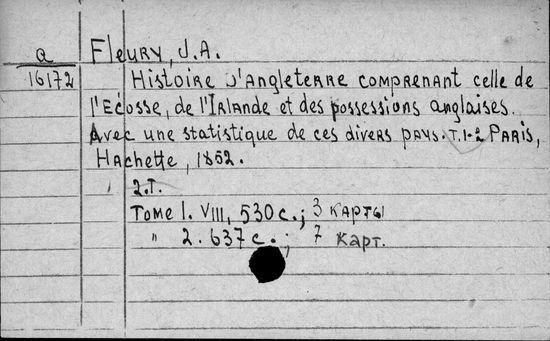 Fleury, J.A.
Q
16172
Histoire d'Angleterre comprenant celle de
l'Ecosse, de l'Irlande et des possessions anglaises.
Avec une statistique de ces divers pays. T.1-2 Paris,
Hachette, 1852.
2.T.
Tome 1. VIII, 530 с.; 3 карты
" 2. 637 с.; 7 карт.